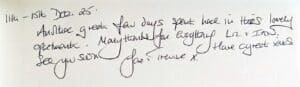 11th - 15th Dec. 25.
Another great few days spent here in this lovely
apartment. Many thanks for everything Liz + Ian,
See you soon Have a great xmas